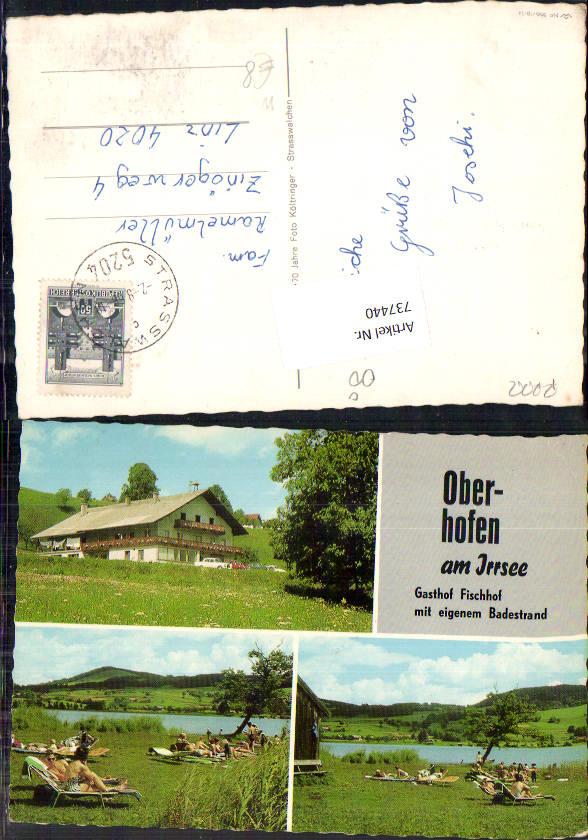 Fam.
Ramelmüller
Zinögerweg 4
Linz 4020
5204 STRASSW
REPUBLIK ÖSTERREICH
50
70 Jahre Foto Költringer · Strasswalchen
iche
Grüße von
Joschi.
Artikel Nr.
737440
Ober-
hofen
am Irrsee
Gasthof Fischhof
mit eigenem Badestrand